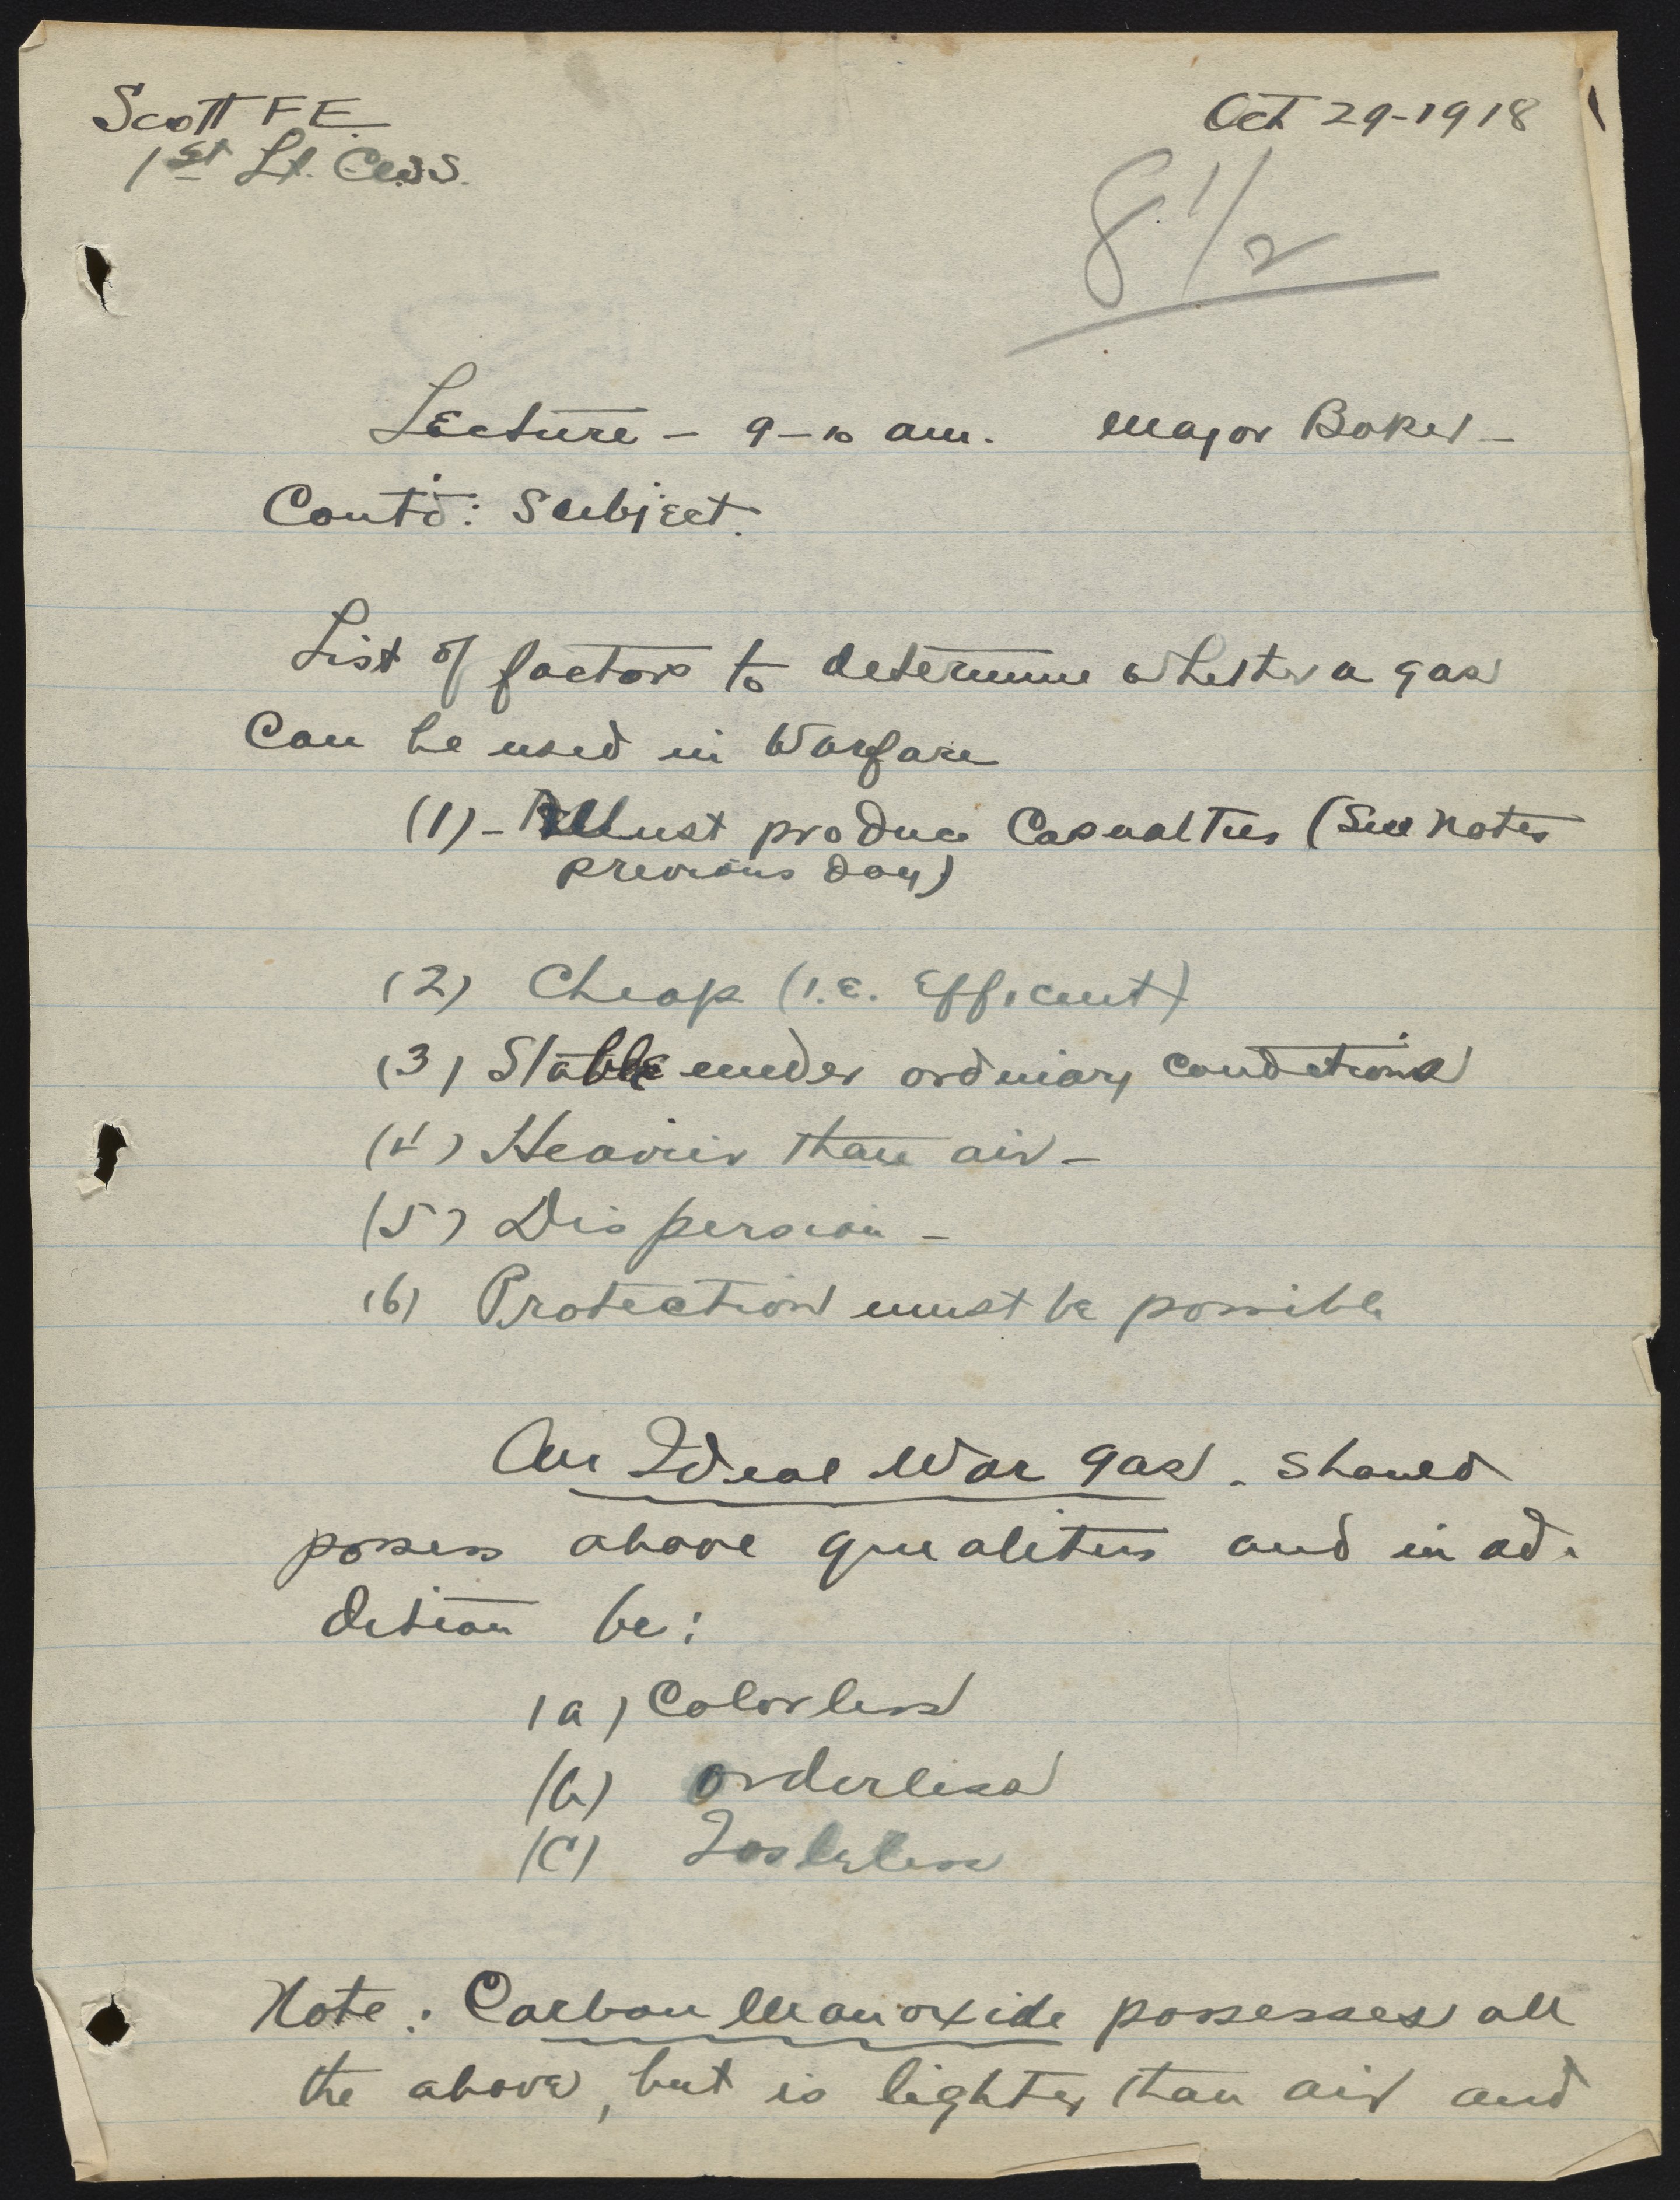 Scott F.E.
Oct 29-1918
1st Lt. C.W.S.
8 1/2
Lecture - 9-10 am. Major Baker -
Cont'd: Subject.
List of factors to determine whether a gas
Can be used in Warfare
(1) - Must produce Casualties (See Notes
previous day)
(2) Cheap (I.E. Efficent)
(3) Stable under ordinary conditions
(4) Heavier than air -
(5) Dispersion -
(6) Protection must be possible
An Ideal War gas. should
possess above qualities and in ad-
dition be:
(a) Colorless
(b) orderless
(c) Tasteless
Note: Carbon Monoxide possesses all
the above, but is lighter than air and